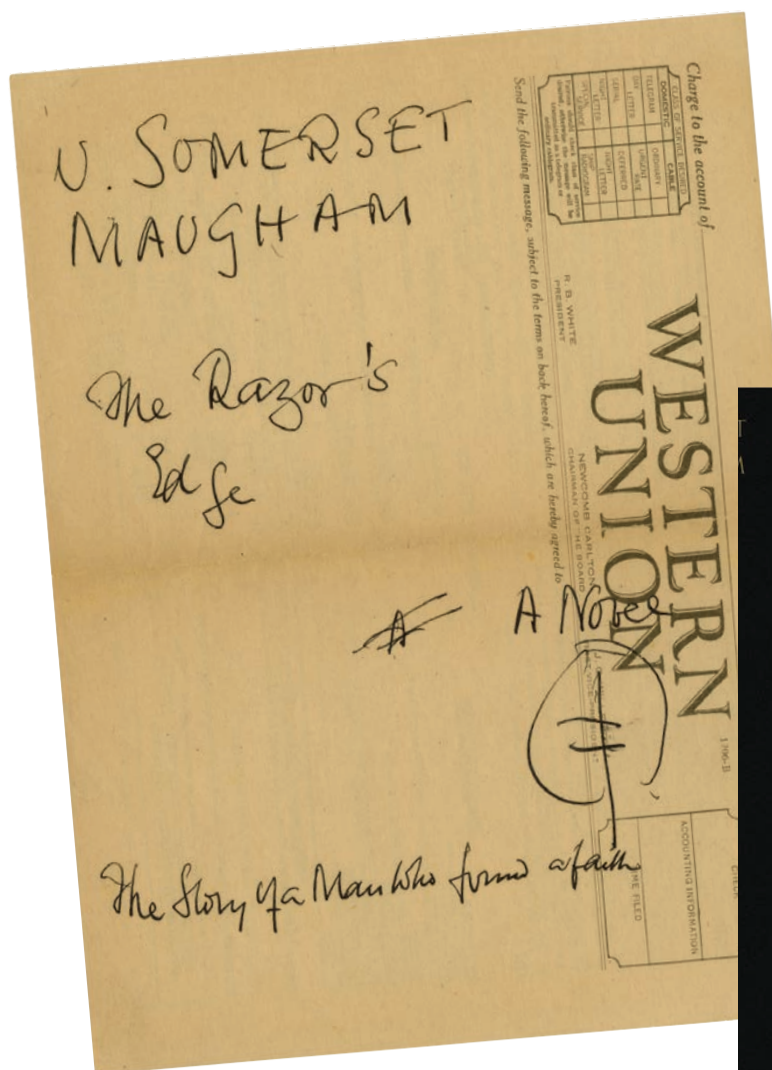 W. SOMERSET
MAUGHAM
The Razor's
Edge
A
A Novel
The Story of a Man who found a faith
Charge to the account of
CLASS OF SERVICE DESIRED
DOMESTIC
CABLE
TELEGRAM
ORDINARY
DAY
LETTER
URGENT
RATE
SERIAL
DEFERRED
NIGHT
LETTER
NIGHT
LETTER
SPECIAL
SERVICE
SHIP
RADIOGRAM
Patrons should check class of service
desired; otherwise the message will be
transmitted as a telegram or
ordinary cablegram.
WESTERN
UNION
1206-B
R. B. WHITE
PRESIDENT
NEWCOMB CARLTON
CHAIRMAN OF THE BOARD
CHECK
ACCOUNTING INFORMATION
TIME FILED
Send the following message, subject to the terms on back hereof, which are hereby agreed to